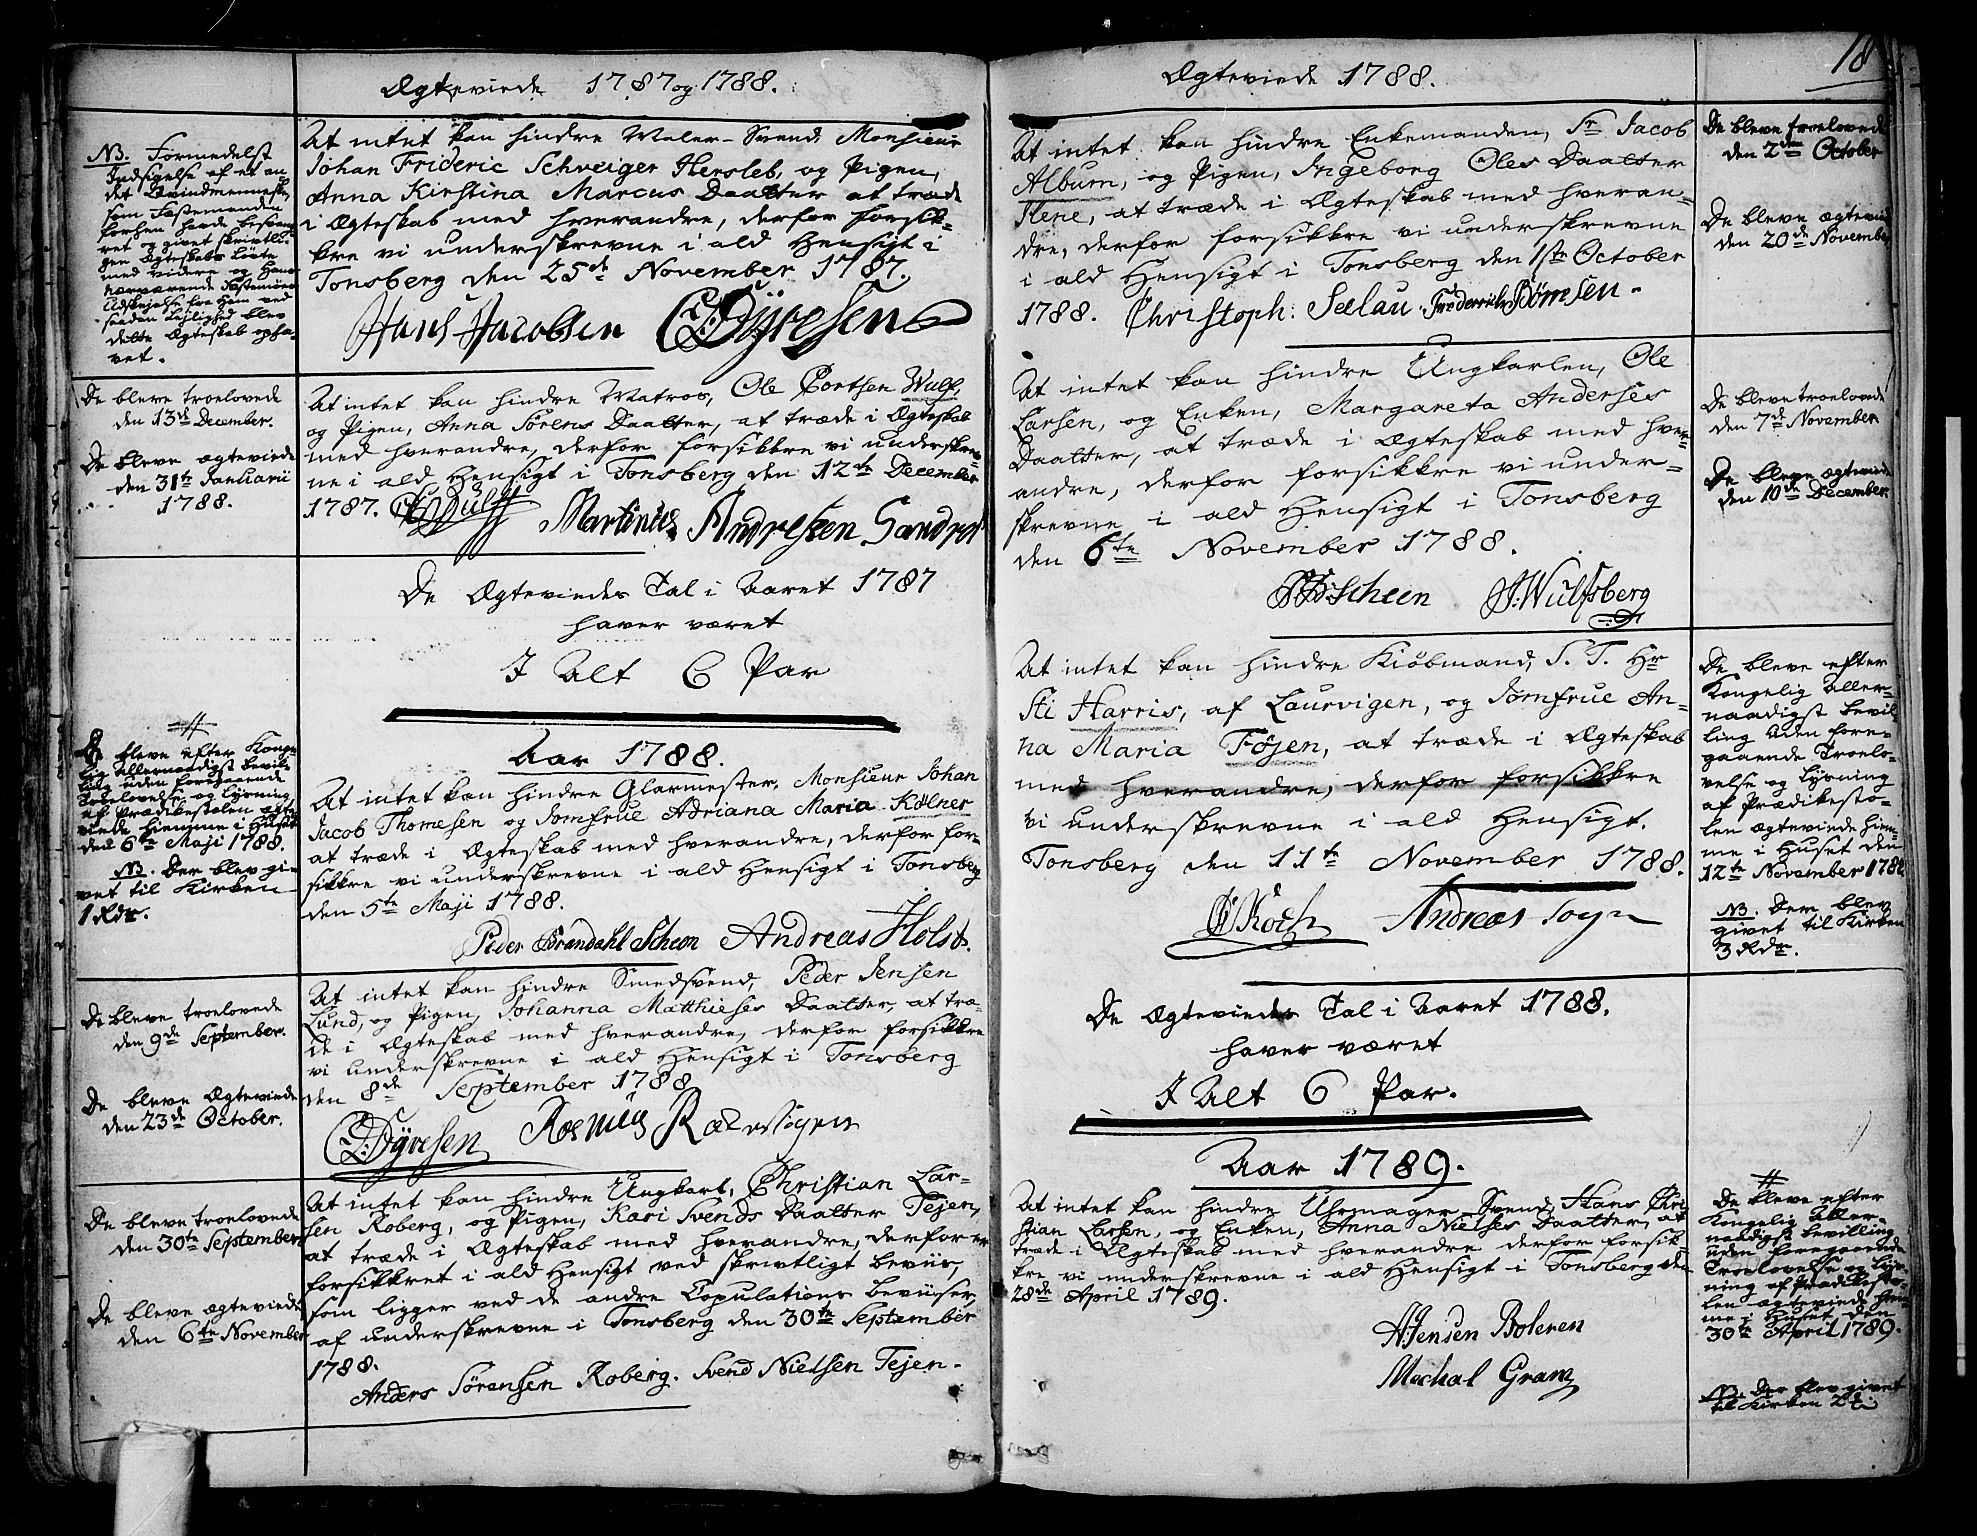 Ægteviede 1787 og 1788.
NB. Formedelst
Indsigelse af et an-
det Qvindmenneske,
som Fæstemanden
forhen havde besvan-
ret og givet skrivtli-
gen Ægteskabs Løfte
med videre og Hans
nærværende Fæstemøes
Udskejelse fra Ham ved
saadan Lejlighed blev
dette Ægteskab ophæ-
vet.
At intet kan hindre Maler-Svend, Monsieur
Johan Frideric Schweiger Hersleb, og Pigen,
Anna Kirstina Marcus Daatter at træde
i Ægteskab med hverandre, derfor forsik-
kre vi underskrevne i ald Hensigt i
Tonsberg den 25de November 1787.
Hans Jacobsen CDyresen
De bleve troelovede
den 13de December.
De bleve ægteviede
den 31te Januarii
1788.
At intet kan hindre Matros, Ole Cortsen Wulf,
og Pigen, Anna Sørens Daatter, at træde i Ægteskab
med hverandre, derfor forsikkre vi underskrev-
ne i ald Hensigt i Tonsberg den 12te December
1787. CWulff Martinus Andressen Sandrød
De Ægteviedes Tal i Aaret 1787
haver været
I Alt 6 Par
Aar 1788.
De bleve efter Konge-
lig allernaadigst Bevil-
ling uden foregaaende
Troelovelse og Lysning
af Prædikestolen ægte-
viede hiemme i Huset
den 6te Maji 1788.
NB. Der blev gi-
vet til Kirken
1 Rdr.
At intet kan hindre Glarmester, Monsieur Johan
Jacob Thomesen og Jomfrue Adriana Maria Kølner
at træde i Ægteskab med hverandre, derfor for-
sikkre vi underskrevne i ald Hensigt i Tonsberg
den 5te Maji 1788.
Peder Brandahl Scheen Andreas Holst.
De bleve troelovede
den 9de September.
De bleve Ægteviede
den 23de October.
At intet kan hindre Smedsvend, Peder Jensen
Lund, og Pigen, Johanna Matthieses Daatter, at træ-
de i Ægteskab med hverandre, derfor forsikkre
vi underskrevne i ald Hensigt i Tonsberg
den 8de September 1788
CDyresen Rasmus
De bleve troelovede
den 30te September
De bleve ægteviede
den 6te November
At intet kan hindre Ungkarl, Christian Lar-
sen Roberg, og Pigen, Kari Svends Daatter Tejen,
at træde i Ægteskab med hverandre, derfor er
forsikkret i ald Hensigt ved skrivtligt beviis,
som ligger ved de andre Copulations beviiser,
af underskrevne i Tonsberg den 30te September
1788.
Anders Sørensen Roberg. Svend Nielsen Tejen.
18
Ægteviede 1788.
At intet kan hindre Enkemanden, Sr. Jacob
Album, og Pigen, Ingeborg Oles Daatter
Ilene, at træde i Ægteskab med hveran-
dre, derfor forsikkre vi underskrevne
i ald Hensigt i Tonsberg den 1ste October
1788. Christoph: Seelau. Frederich Bömsen.
De bleve troelovede
den 2den October
De bleve ægteviede
den 20de November
At intet kan hindre Ungkarlen, Ole
Larsen, og Enken, Margareta Anderses
Daatter, at træde i Ægteskab med hver-
andre, derfor forsikkre vi under-
skrevne i ald Hensigt i Tonsberg
den 6te November 1788.
Scheen J. Wulfsberg
De bleve troelovede
den 7de November
De bleve Ægteviede
den 10de December.
At intet kan hindre Kiøbmand, S. T. Hr
Sti Harris, af Laurvigen, og Jomfrue An-
na Maria Føjen, at træde i Ægteskab
med hverandre, derfor forsikkre
vi underskrevne i ald Hensigt.
Tonsberg den 11te November 1788.
Koch Andreas
De bleve efter
Kongelig Aller-
naadigst bevil-
ling uden fore-
gaaende Troelo-
velse og Lysning
af Prædikesto-
len ægteviede hiem-
me i Huset den
12te November 1788
NB. Der blev
givet til Kirken
3 Rdr.
De Ægteviedes Tal i Aaret 1788.
haver været
I Alt 6 Par.
Aar 1789.
At intet kan hindre Uhrmager-Svend, Hans Chri-
stian Larsen, og Enken, Anna Nielses Daatter, at
træde i Ægteskab med hverandre derfor forsik-
kre vi underskrevne i ald Hensigt i Tonsberg den
28de April 1789.
Jensen Boleren
Mechal Gram
De bleve efter
Kongelig Aller-
naadigst bevilling
uden foregaaende
Troelovelse og Lys-
ning af Prædikesto-
len ægteviede hiem-
me i Huset den
30te April 1789.
NB. Der blev givet
til Kirken